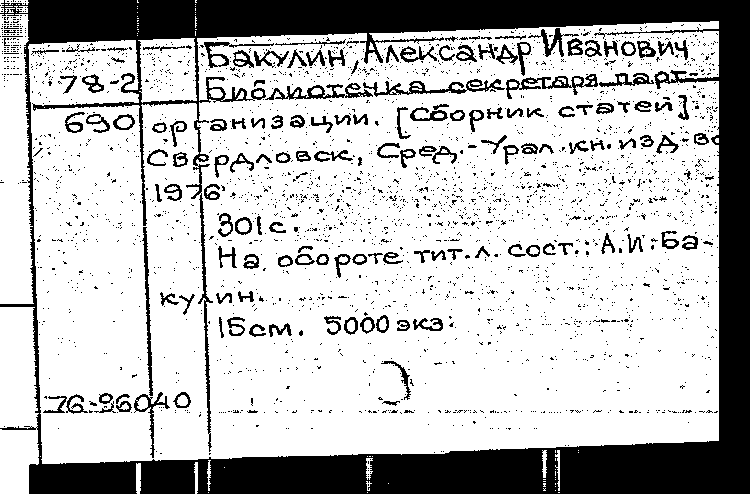 Бакулин, Александр Иванович
78-2 Библиотечка секретаря парт-
690 организации. [Сборник статей].
Свердловск, Сред.-Урал. кн. изд-во
1976.
301 с.
На обороте тит. л. сост.: А.И. Ба-
кулин.
15 см. 5000 экз.
76-96040